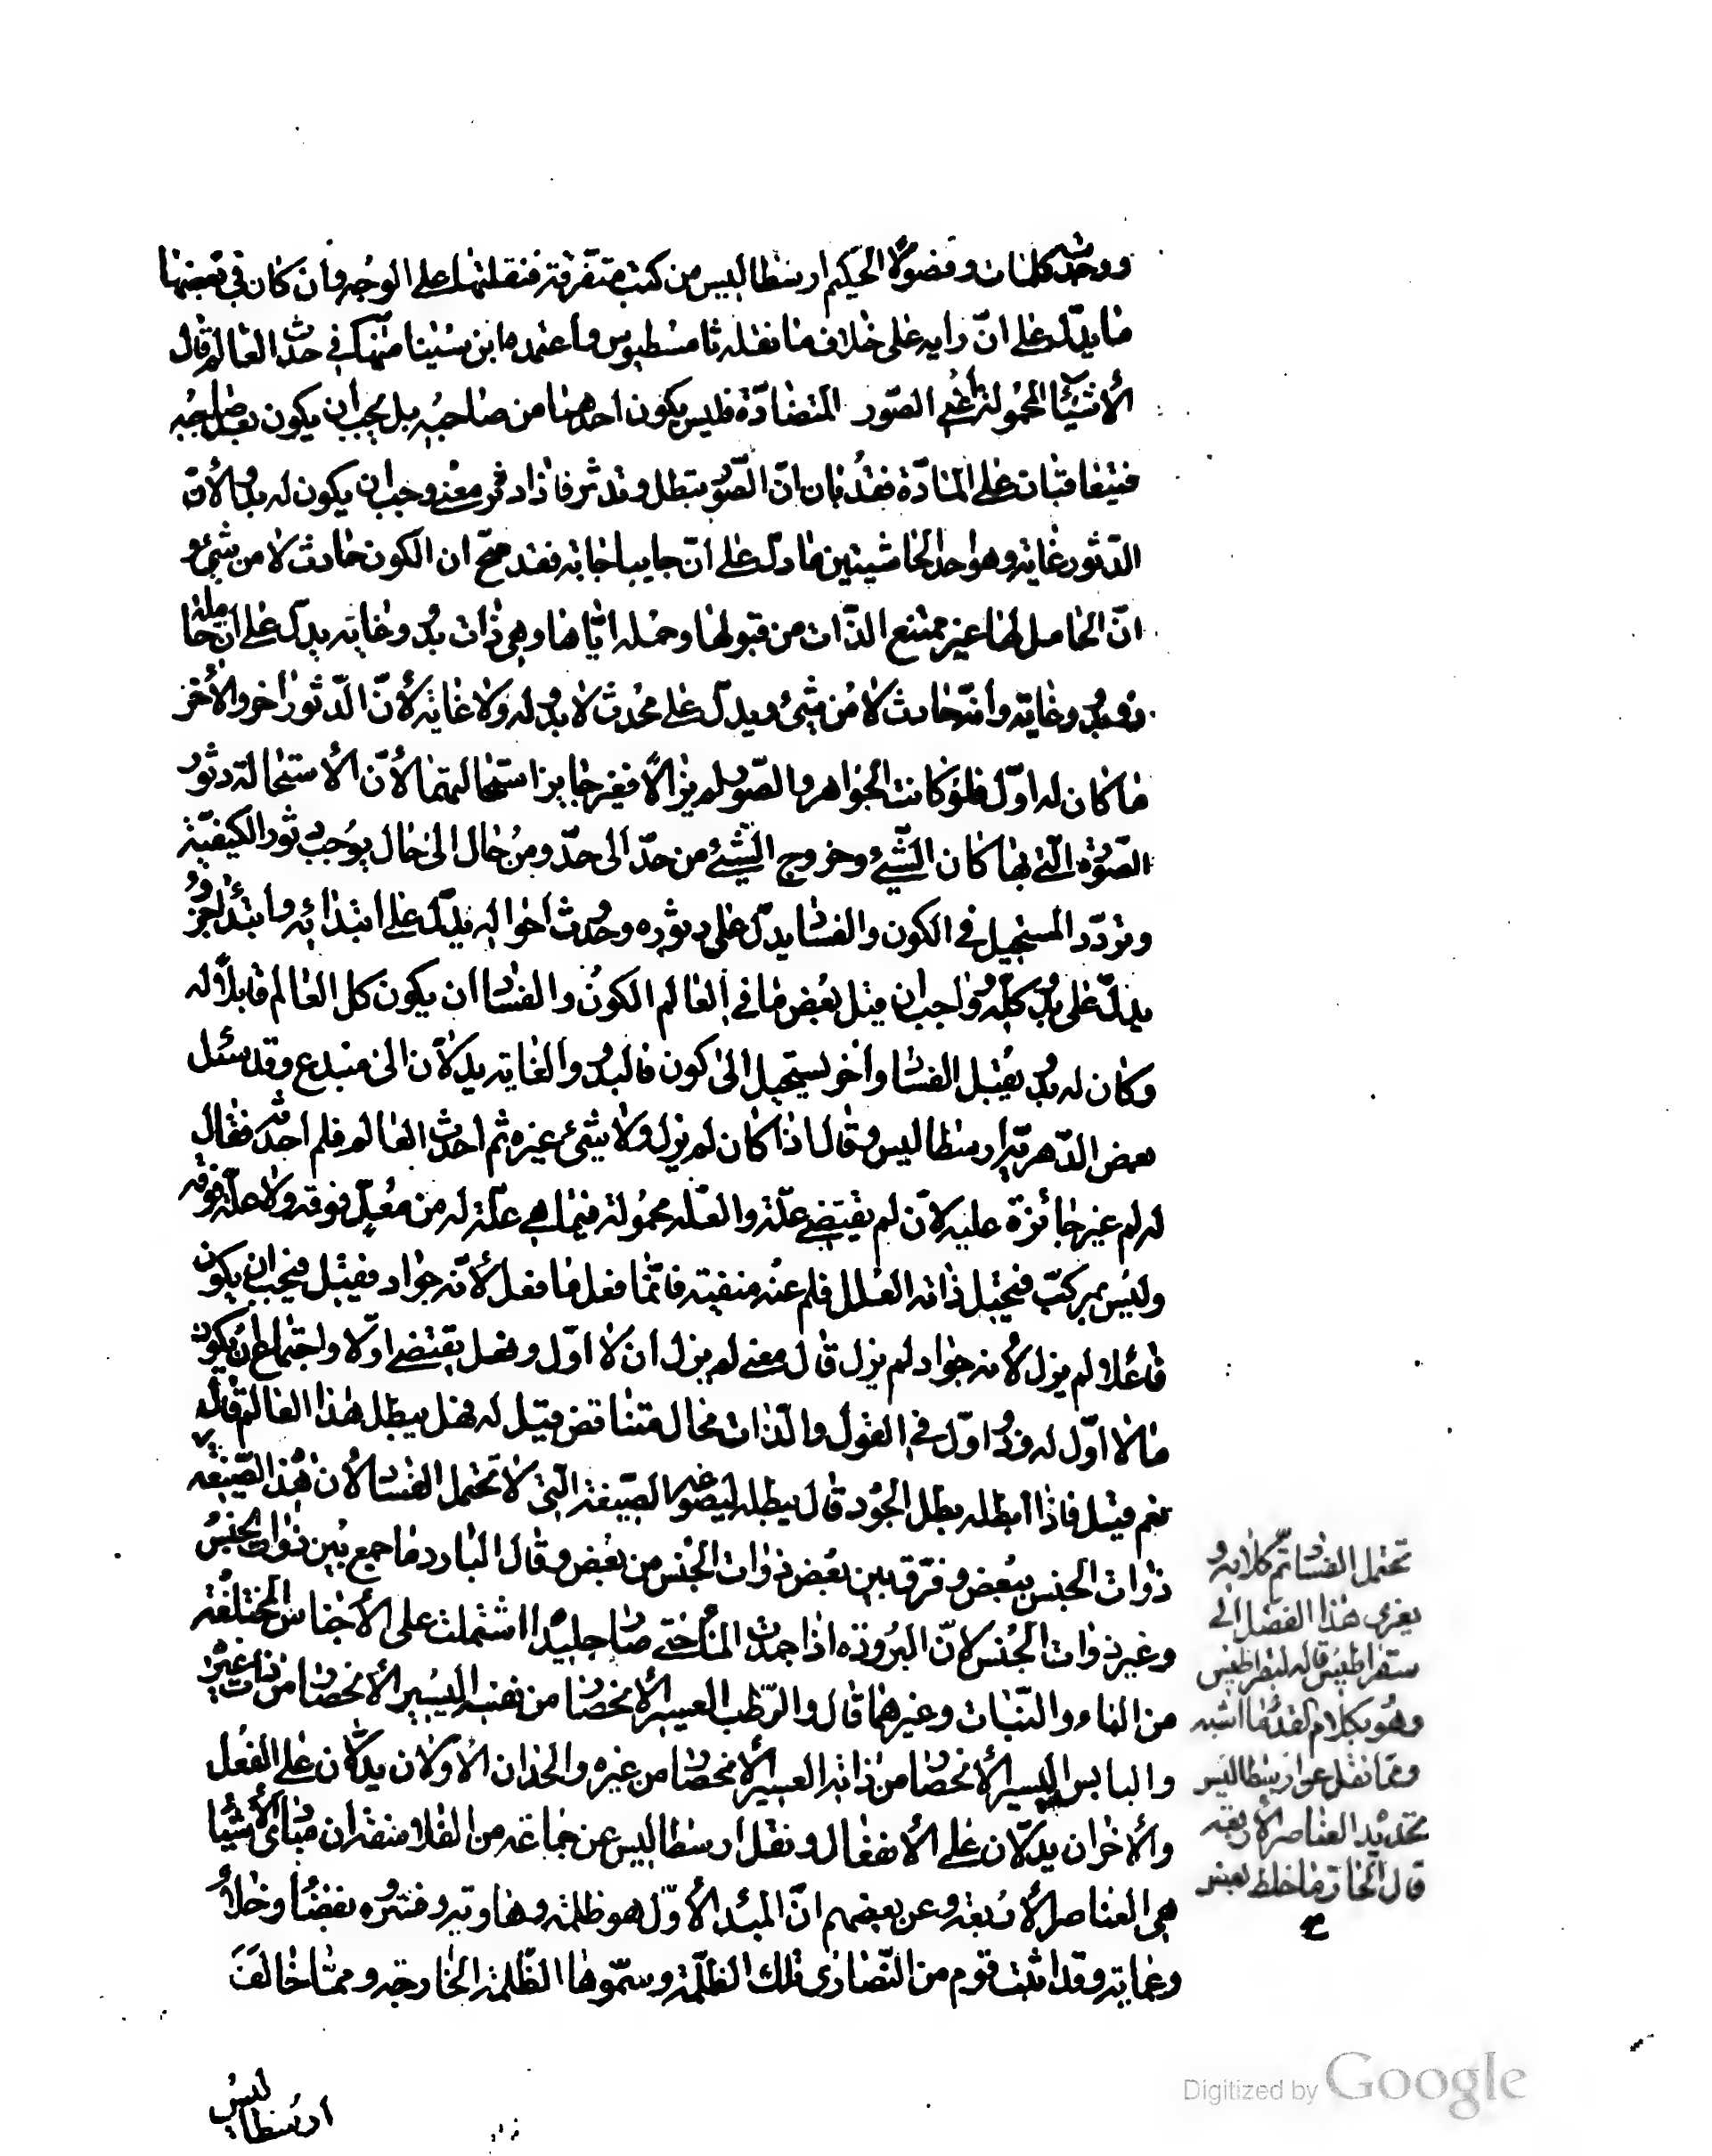 ووجدت كلمات وفصولا للحكيم ارسطاليس من كتب متفرقة فنقلتها على الوجه وان كان في بعضها
ما يدل على ان رايه على خلاف ما نقله ثامسطيوس واعتمده ابن سينا منها في حدث العالم قال
الأشياء المحمولة أعني الصور المتضادة فليس يكون احدهما من صاحبه بل يجب ان يكون بعد صاحبه
فيتعاقبان على المادة فقد بان ان الصور تبطل وتدثر فاذا دثر معنى وجب ان يكون له بدو لأن
الدثور غاية وهو احد الحاشيتين ما دل على ان جائيا جاء به فقد صح ان الكون حادث لا من شيء و
ان الحامل لها غير ممتنع الذات من قبولها وحمله اياها وهي ذات بدو وغاية يدل على ان حامله
ذو بدو وغاية وانه حادث لا من شيء ويدل على محدث لا بدو له ولا غاية لأن الدثور آخر والآخر
ما كان له اول فلو كانت الجواهر والصور لم يزالا فغير جايز استحالتهما لأن الاستحالة دثور
الصورة التي بها كان الشيء وخروج الشيء من حد الى حد ومن حال الى حال يوجب دثور الكيفية
وتردد المستحيل في الكون والفساد يدل على دثوره وحدوث احواله يدل على ابتدائه وابتداء جزء
يدل على بدو كله وواجب ان قبل بعض ما في العالم الكون والفساد ان يكون كل العالم قابلا له
وكان له بدو يقبل الفساد وآخر يستحيل الى كون فالبدو والغاية يدلان الى مبدع وقد سئل
بعض الدهرية ارسطاليس وقال اذا كان لم يزل ولا شيء غيره ثم احدث العالم فلم احدثه فقال
له لم غير جائزة عليه لأن لم يقتضي علة والعلة محمولة فيما هي علة له من معل فوقه ولا علة فوقه
وليس بمركب فتحتمل ذاته العلل فلم عنه منفية فانما فعل ما فعل لأنه جواد فقيل فيجب ان يكون
فاعلا لم يزل لأنه جواد لم يزل قال معنى لم يزل ان لا اول وفعل يقتضي اولا واجتماع ان يكون
ما لا اول له وذو اول في القول والذات محال متناقض قيل له فهل يبطل هذا العالم قال
نعم قيل فاذا ابطله بطل الجود قال يبطله ليصوغه الصيغة التي لا تحتمل الفساد لأن هذه الصيغة
ذوات الجنس ببعض وفرق بين بعض ذوات الجنس من بعض وقال البارد ما جمع بين ذوات الجنس
وغير ذوات الجنس لان البرودة اذا جمدت الماء حتى صار جليدا اشتملت على الأجناس المختلفة
من الماء والنبات وغيرهما قال والرطب العسير الانحصار من نفسه اليسير الانحصار من ذات غيره
واليابس اليسير الانحصار من ذاته العسير الانحصار من غيره والحدان الاولان يدلان على الفعل
والآخران يدلان على الانفعال ونقل ارسطاليس عن جماعة من الفلاسفة ان مبادئ الأشياء
هي العناصر الأربعة وعن بعضهم ان المبدأ الأول هو ظلمة وهاوية وفسره بفضاء وخلاء
وعماية وقد اثبت قوم من النصارى تلك الظلمة وسموها الظلمة الخارجة ومما خالف
تحتمل الفساد تم كلامه و
يعزى هذا الفصل الى
سقراطيس قاله لبقراطيس
وهو بكلام القدماء اشبه
ومما نقل عن ارسطاليس
تحديد العناصر الأربعة
قال الحار ما خلط بعض
ارسطاليس
Digitized by Google